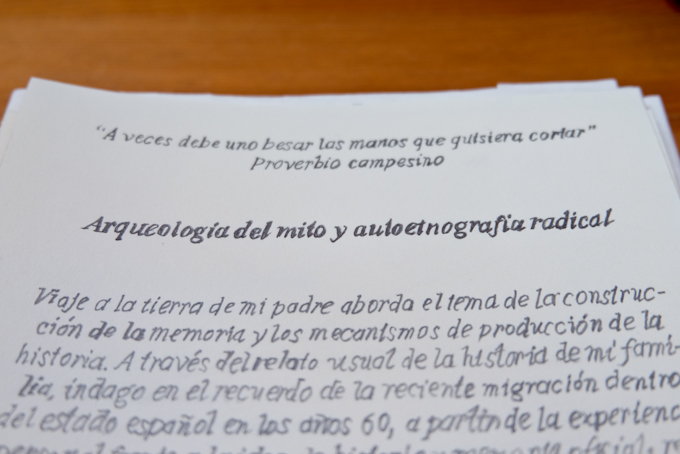 "A veces debe uno besar las manos que quisiera cortar"
Proverbio campesino
Arqueología del mito y autoetnografía radical
Viaje a la tierra de mi padre aborda el tema de la construc-
ción de la memoria y los mecanismos de producción de la
historia. A través del relato usual de la historia de mi fami-
lia, indago en el recuerdo de la reciente migración dentro
del estado español en los años 60, a partir de la experienc